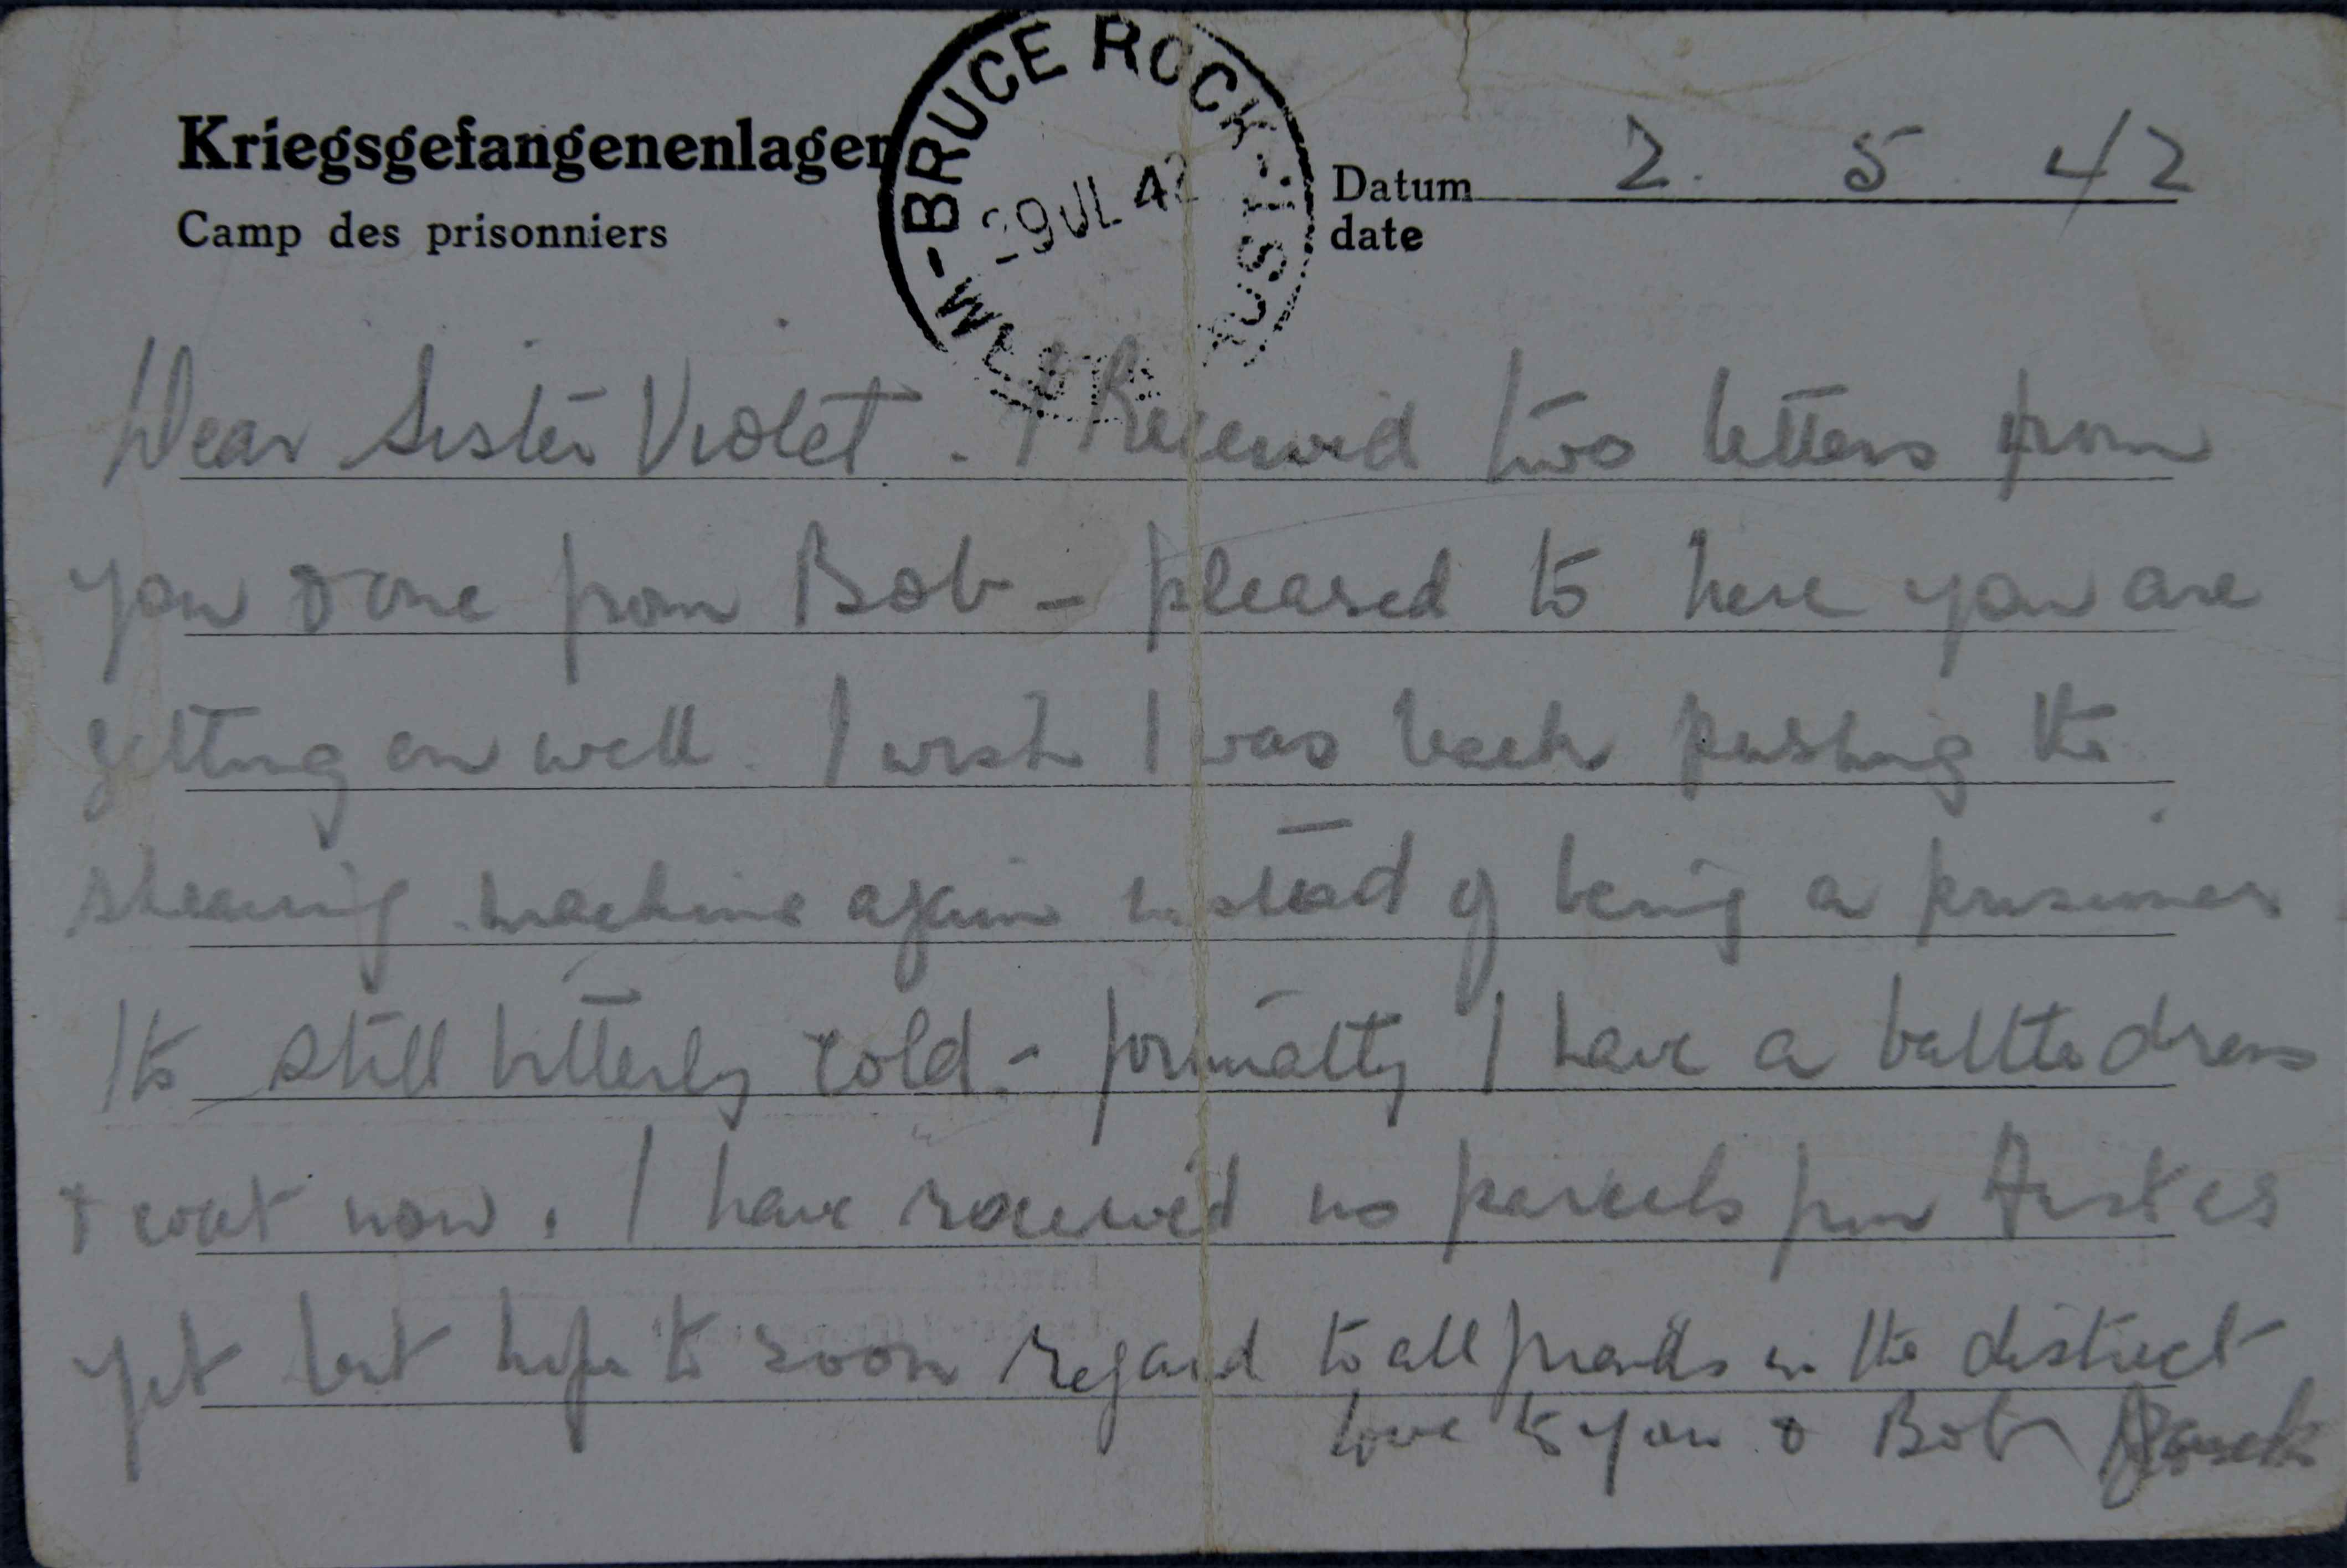 Kriegsgefangenenlager
Camp des prisonniers
BRUCE ROCK
WEST. AUST.
9 JUL 42
Datum 2. 5. 42
date
Dear Sister Violet. I Received two letters from
you & one from Bob - pleased to here you are
getting on well. I wish I was back pushing the
shearing machine again instead of being a prisoner
Its still bitterly cold - I have a battle dress
& coat now. I have received no parcels from
yet but hope to soon regard to all friends in the district
love to you & Bob Jack